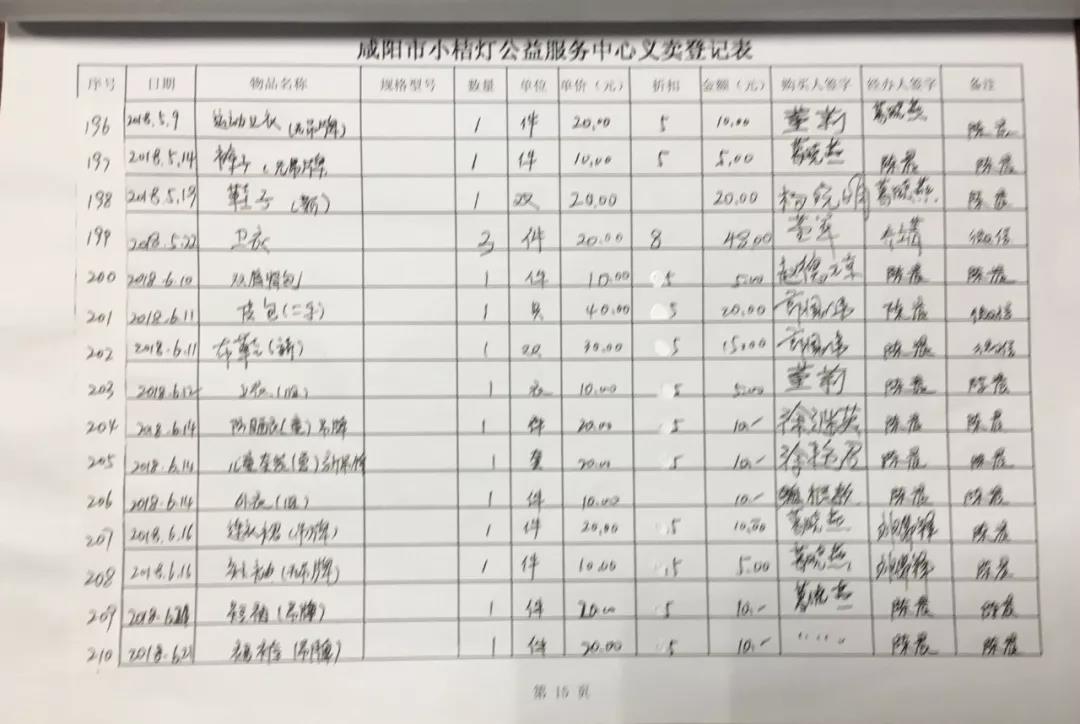 咸阳市小桔灯公益服务中心义卖登记表
序号 日期 物品名称 规格型号 数量 单位 单价（元） 折扣 金额（元） 购买人签字 经办人签字 备注
196 2018.5.9 运动卫衣(无吊牌) 1 件 20.00 5 10.00 董莉 葛晓燕 陈晨
197 2018.5.14 裤子(无吊牌 1 件 10.00 5 5.00 葛晓燕 陈晨 陈晨
198 2018.5.13 鞋子(新) 1 双 20.00 20.00 葛晓燕 陈晨
199 2018.5.22 卫衣 3 件 20.00 8 48.00 董军 微信
200 2018.6.10 双肩背包 1 件 10.00 5 5.00 陈晨 陈晨
201 2018.6.11 皮包(二手) 1 只 40.00 5 20.00 陈晨 微信
202 2018.6.11 布鞋(新) 1 双 30.00 5 15.00 陈晨 微信
203 2018.6.12 卫衣(旧) 1 衣 10.00 5 5.00 董莉 陈晨 陈晨
204 2018.6.14 防晒衣(童)吊牌 1 件 20.00 5 10.- 徐继英 陈晨 陈晨
205 2018.6.14 儿童套装(童) 1 套 20.00 5 10.- 陈晨 陈晨
206 2018.6.14 外衣(旧) 1 件 10.00 10.- 陈晨 陈晨
207 2018.6.16 连衣裙(吊牌) 1 件 20.00 .5 10.00 葛晓燕 陈晨
208 2018.6.16 短袖(无吊牌) 1 件 10.00 .5 5.00 葛晓燕 陈晨
209 2018.6.21 短袖(吊牌) 1 件 20.00 5 10.- 葛晓燕 陈晨 陈晨
210 2018.6.21 (吊牌) 1 件 20.00 5 10.- 陈晨 陈晨
第 15 页